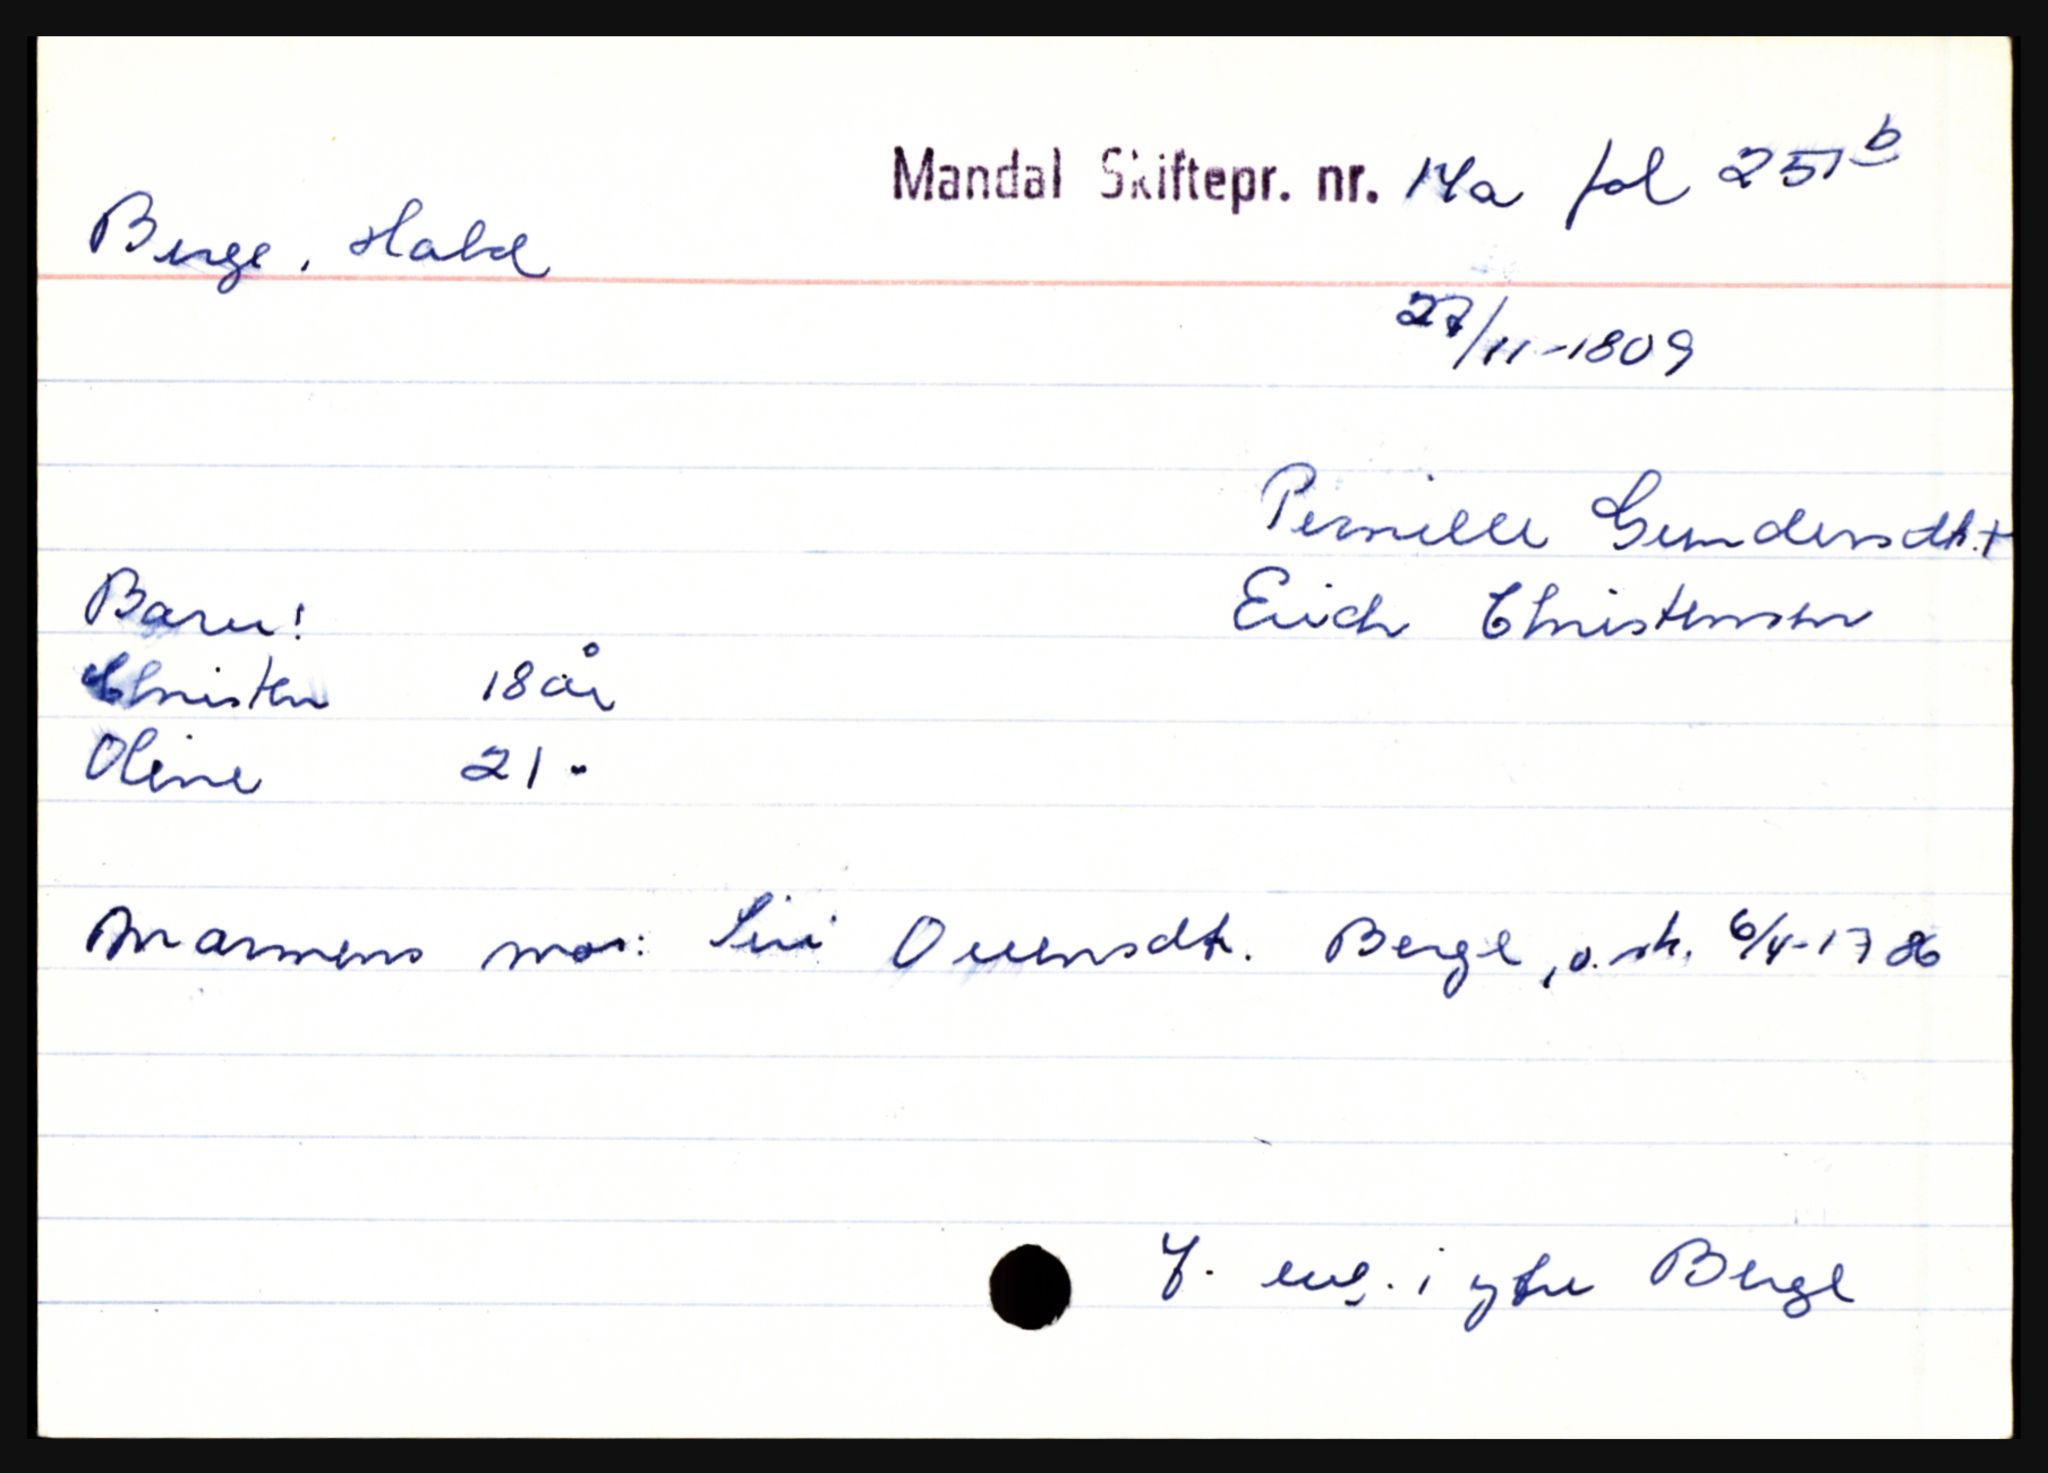 Mandal Skiftepr. nr. 14a fol 251b
Berge, Hald
27/11-1809
Pernille Gundersdtr.+
Erich Christensen
Barn:
Christen 18 år
Oline 21 "
Mannens mor: Siri Ovensdtr. Berge, o. sk. 6/4-1786
J. eng. i ytre Berge